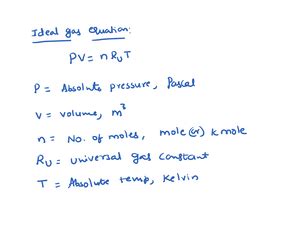 Ideal gas equation:
PV = n Ru T
P = Absolute pressure, Pascal
V = Volume, m³
n = No. of moles, mole (or) k mole
Ru = Universal gas constant
T = Absolute temp, Kelvin